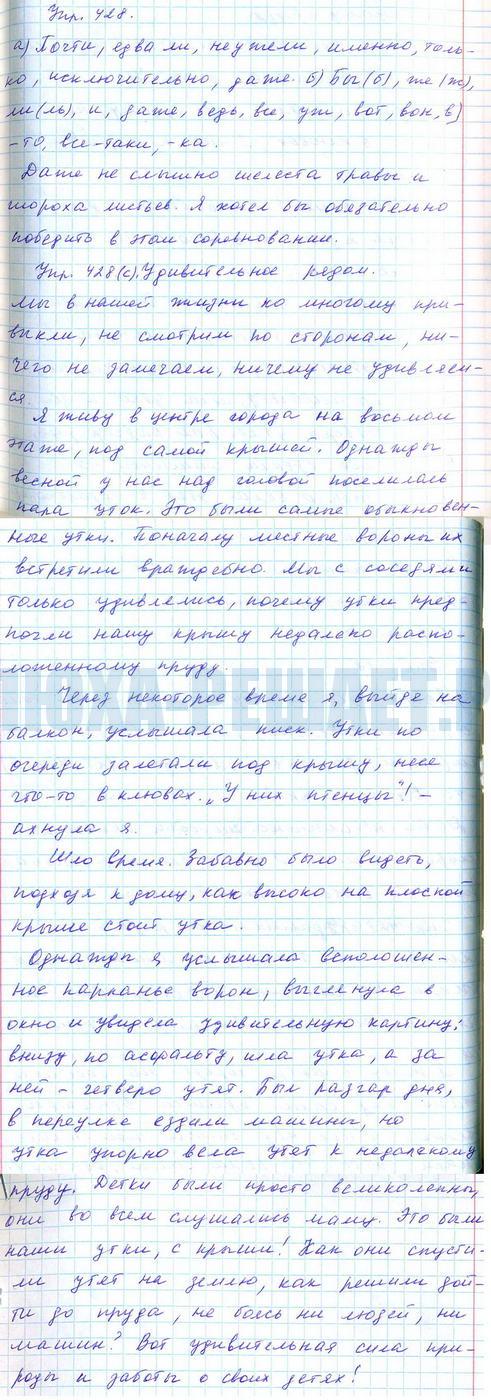 Упр. 428.
а) Почти, едва ли, неужели, именно, толь-
ко, исключительно, даже. б) Бы(б), же(ж),
ли(ль), и, даже, ведь, все, уж, вот, вон, в)
-то, все-таки, -ка.
Даже не слышно шелеста травы и
шороха листьев. Я хотел бы обязательно
победить в этом соревновании.
Упр. 428(с). Удивительное рядом.
Мы в нашей жизни ко многому при-
выкли, не смотрим по сторонам, ни-
чего не замечаем, ничему не удивляем-
ся.
Я живу в центре города на восьмом
этаже, под самой крышей. Однажды
весной у нас над головой поселилась
пара уток. Это были самые обыкновен-
ные утки. Поначалу местные вороны их
встретили враждебно. Мы с соседями
только удивлялись, почему утки пред-
почли нашу крышу недалеко распо-
ложенному пруду.
Через некоторое время я, выйдя на
балкон, услышала писк. Утки по
очереди залетали под крышу, неся
что-то в клювах. „У них птенцы"! –
ахнула я.
Шло время. Забавно было видеть,
подходя к дому, как высоко на плоской
крыше стоит утка.
Однажды я услышала всполошен-
ное карканье ворон, выглянула в
окно и увидела удивительную картину:
внизу, по асфальту, шла утка, а за
ней – четверо утят. Был разгар дня,
в переулке ездили машины, но
утка упорно вела утят к недалекому
пруду. Детки были просто великолепны,
они во всем слушались маму. Это были
наши утки, с крыши! Как они спусти-
ли утят на землю, как решили дой-
ти до пруда, не боясь ни людей, ни
машин? Вот удивительная сила при-
роды и заботы о своих детях!